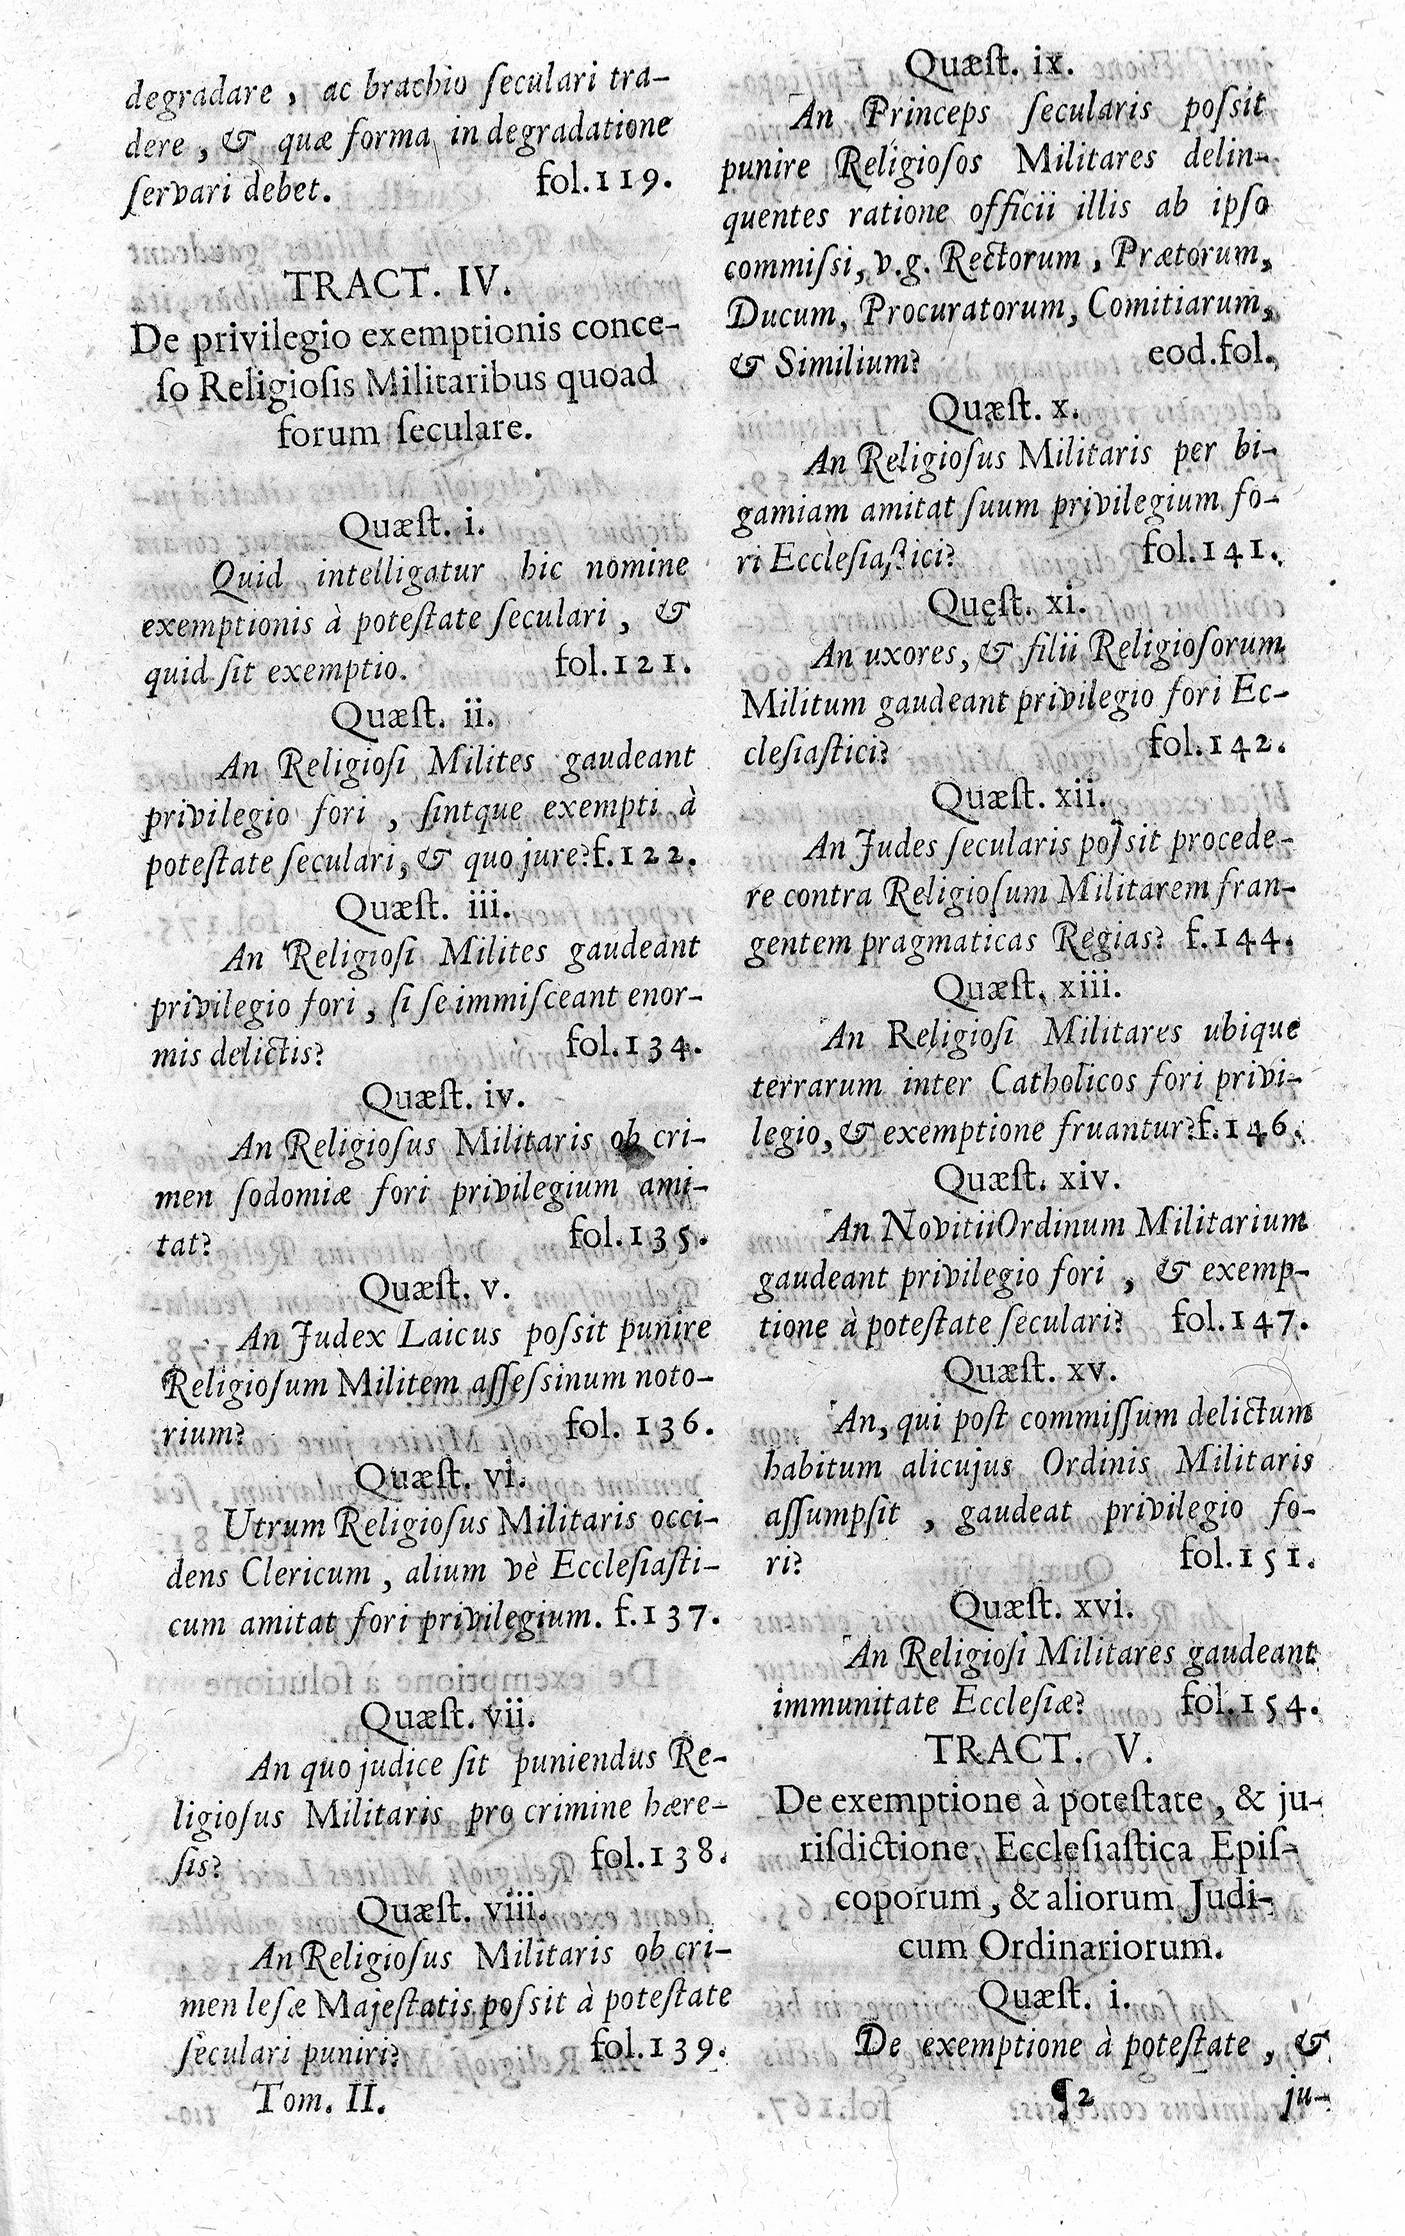 degradare, ac brachio ſeculari tra-
dere, & quæ forma in degradatione
ſervari debet. fol.119.
TRACT. IV.
De privilegio exemptionis conce-
ſo Religioſis Militaribus quoad
forum ſeculare.
Quæſt. i.
Quid intelligatur hic nomine
exemptionis à poteſtate ſeculari, &
quid ſit exemptio. fol.121.
Quæſt. ii.
An Religioſi Milites gaudeant
privilegio fori, ſintque exempti à
poteſtate ſeculari, & quo jure? f.122.
Quæſt. iii.
An Religioſi Milites gaudeant
privilegio fori, ſi ſe immiſceant enor-
mis delictis? fol.134.
Quæſt. iv.
An Religioſus Militaris ob cri-
men ſodomiæ fori privilegium ami-
tat? fol.135.
Quæſt. v.
An Judex Laicus poſsit punire
Religioſum Militem aſſeſsinum noto-
rium? fol. 136.
Quæſt. vi.
Utrum Religioſus Militaris occi-
dens Clericum, alium vè Eccleſiaſti-
cum amitat fori privilegium. f.137.
Quæſt. vii.
An quo judice ſit puniendus Re-
ligioſus Militaris pro crimine hære-
ſis? fol.138.
Quæſt. viii.
An Religioſus Militaris ob cri-
men leſæ Majeſtatis poſsit à poteſtate
ſeculari puniri? fol.139.
Tom. II.
Quæſt. ix.
An Princeps ſecularis poſsit
punire Religioſos Militares delin-
quentes ratione officii illis ab ipſo
commiſsi, v.g. Rectorum, Prætorum,
Ducum, Procuratorum, Comitiarum,
& Similium? eod.fol.
Quæſt. x.
An Religioſus Militaris per bi-
gamiam amitat ſuum privilegium fo-
ri Eccleſiaſtici? fol.141.
Quęſt. xi.
An uxores, & filii Religioſorum
Militum gaudeant privilegio fori Ec-
cleſiaſtici? fol.142.
Quæſt. xii.
An Judes ſecularis poſsit procede-
re contra Religioſum Militarem fran-
gentem pragmaticas Regias? f.144.
Quæſt. xiii.
An Religioſi Militares ubique
terrarum inter Catholicos fori privi-
legio, & exemptione fruantur? f.146.
Quæſt. xiv.
An Novitii Ordinum Militarium
gaudeant privilegio fori, & exemp-
tione à poteſtate ſeculari? fol.147.
Quæſt. xv.
An, qui poſt commiſſum delictum
habitum alicujus Ordinis Militaris
aſſumpſit, gaudeat privilegio fo-
ri? fol.151.
Quæſt. xvi.
An Religioſi Militares gaudeant
immunitate Eccleſiæ? fol.154.
TRACT. V.
De exemptione à poteſtate, & ju-
riſdictione Eccleſiaſtica Epiſ-
coporum, & aliorum Judi-
cum Ordinariorum.
Quæſt. i.
De exemptione à poteſtate, &
¶2 ju-